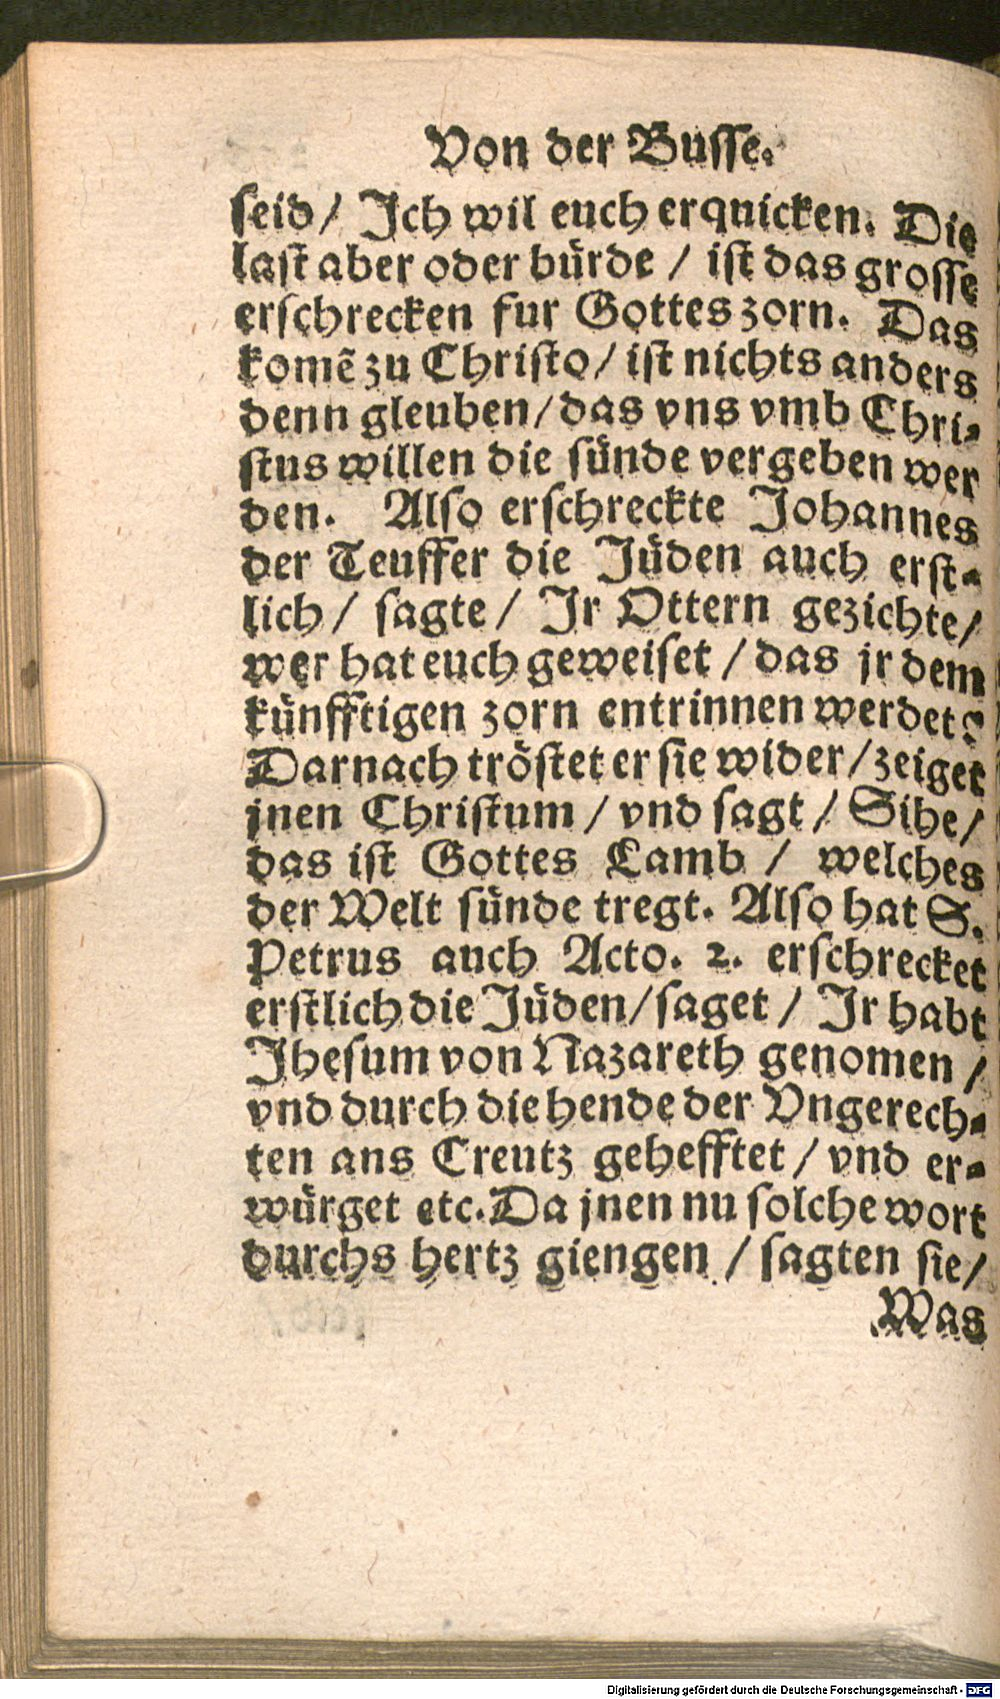 Von der Busse.
seid/ Ich wil euch erquicken. Die
last aber oder bürde / ist das grosse
erschrecken fur Gottes zorn. Das
komẽ zu Christo/ ist nichts anders
denn gleuben/das vns vmb Chri-
stus willen die sünde vergeben wer
den. Also erschreckte Johannes
der Teuffer die Jüden auch erst-
lich/ sagte/ Ir Ottern gezichte/
wer hat euch geweiset /das jr dem
künfftigen zorn entrinnen werdet?
Darnach tröstet er sie wider/zeiget
jnen Christum / vnd sagt / Sihe/
das ist Gottes Lamb / welches
der Welt sünde tregt. Also hat S.
Petrus auch Acto. 2. erschrecket
erstlich die Jüden/saget / Ir habt
Ihesum von Nazareth genomen /
vnd durch die hende der Vngerech-
ten ans Creutz gehefftet / vnd er-
würget etc. Da jnen nu solche wort
durchs hertz giengen / sagten sie/
Was
Digitalisierung gefördert durch die Deutsche Forschungsgemeinschaft - DFG